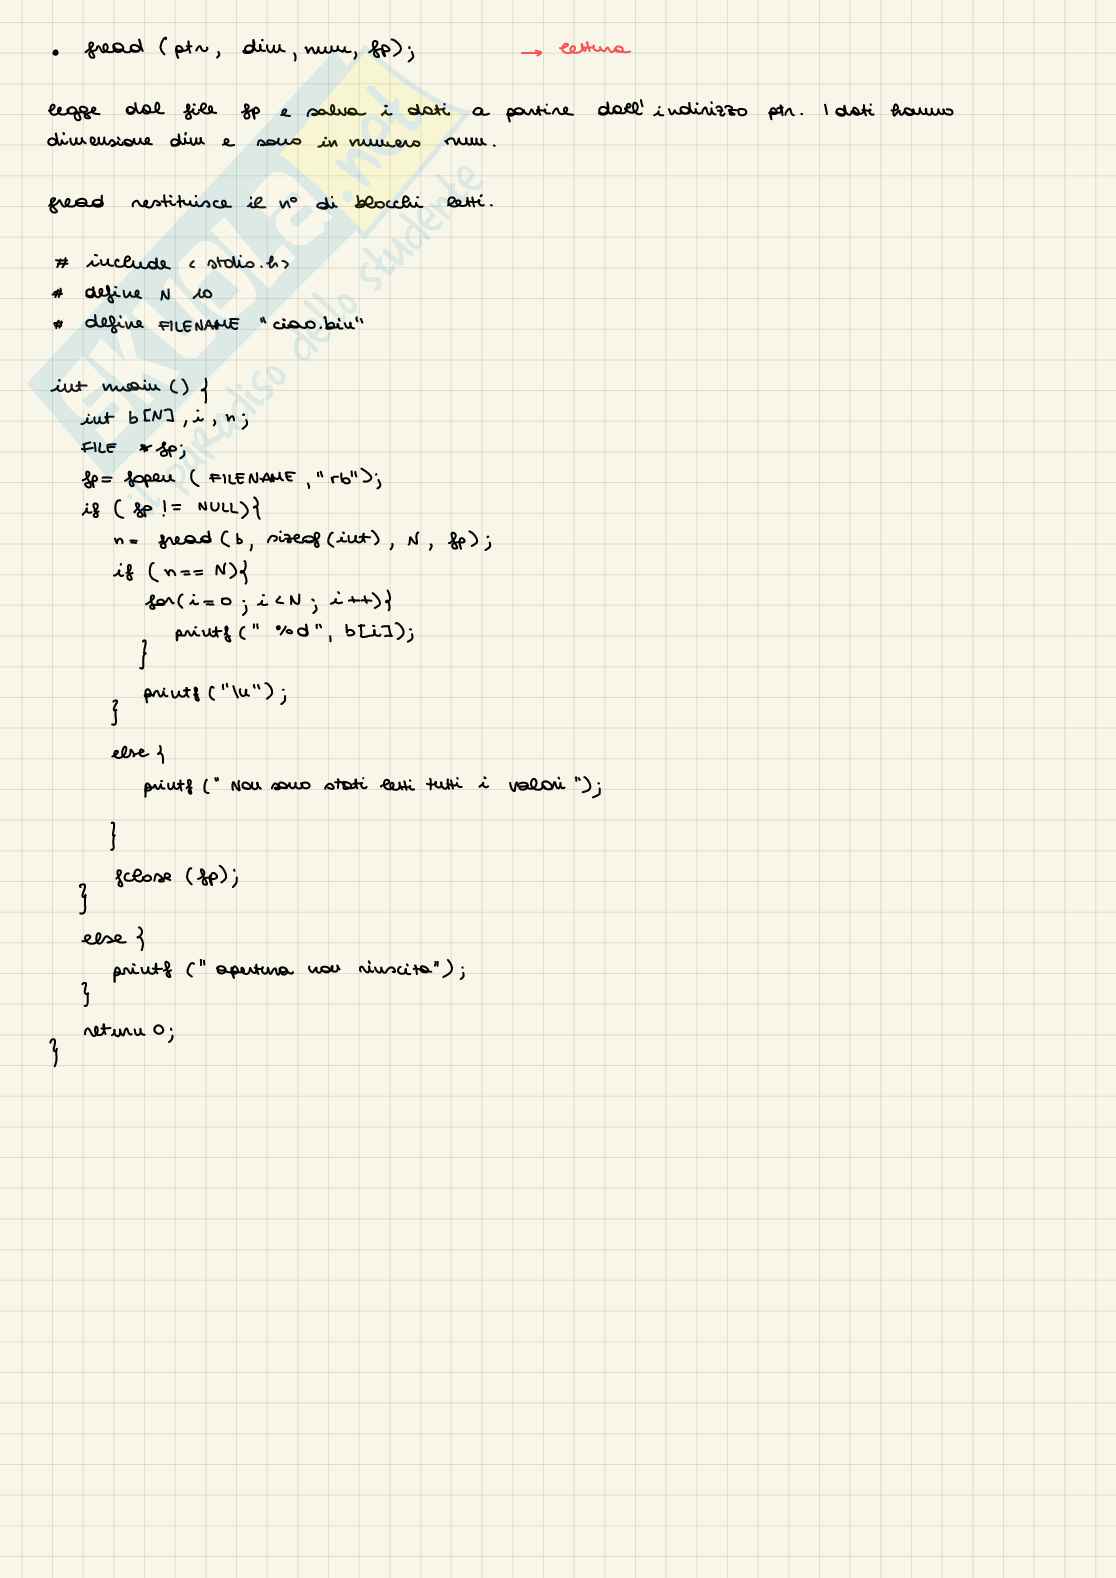 • fread (ptr, dim, num, fp); → lettura
legge dal file fp e salva i dati a partire dall'indirizzo ptr. I dati hanno
dimensione dim e sono in numero num.
fread restituisce il n° di blocchi letti.
# include < stdio.h>
# define N 10
# define FILENAME "ciao.bin"
int main () {
int b[N], i, n;
FILE * fp;
fp= fopen ( FILENAME, "rb");
if ( fp != NULL){
n= fread (b, sizeof(int), N, fp);
if ( n== N){
for(i=0; i<N; i++){
printf (" %d", b[i]);
}
printf ("\n");
}
else {
printf (" Non sono stati letti tutti i valori ");
}
fclose (fp);
}
else {
printf (" apertura non riuscita");
}
return 0;
}
SKUOLA.net
il paradiso dello studente